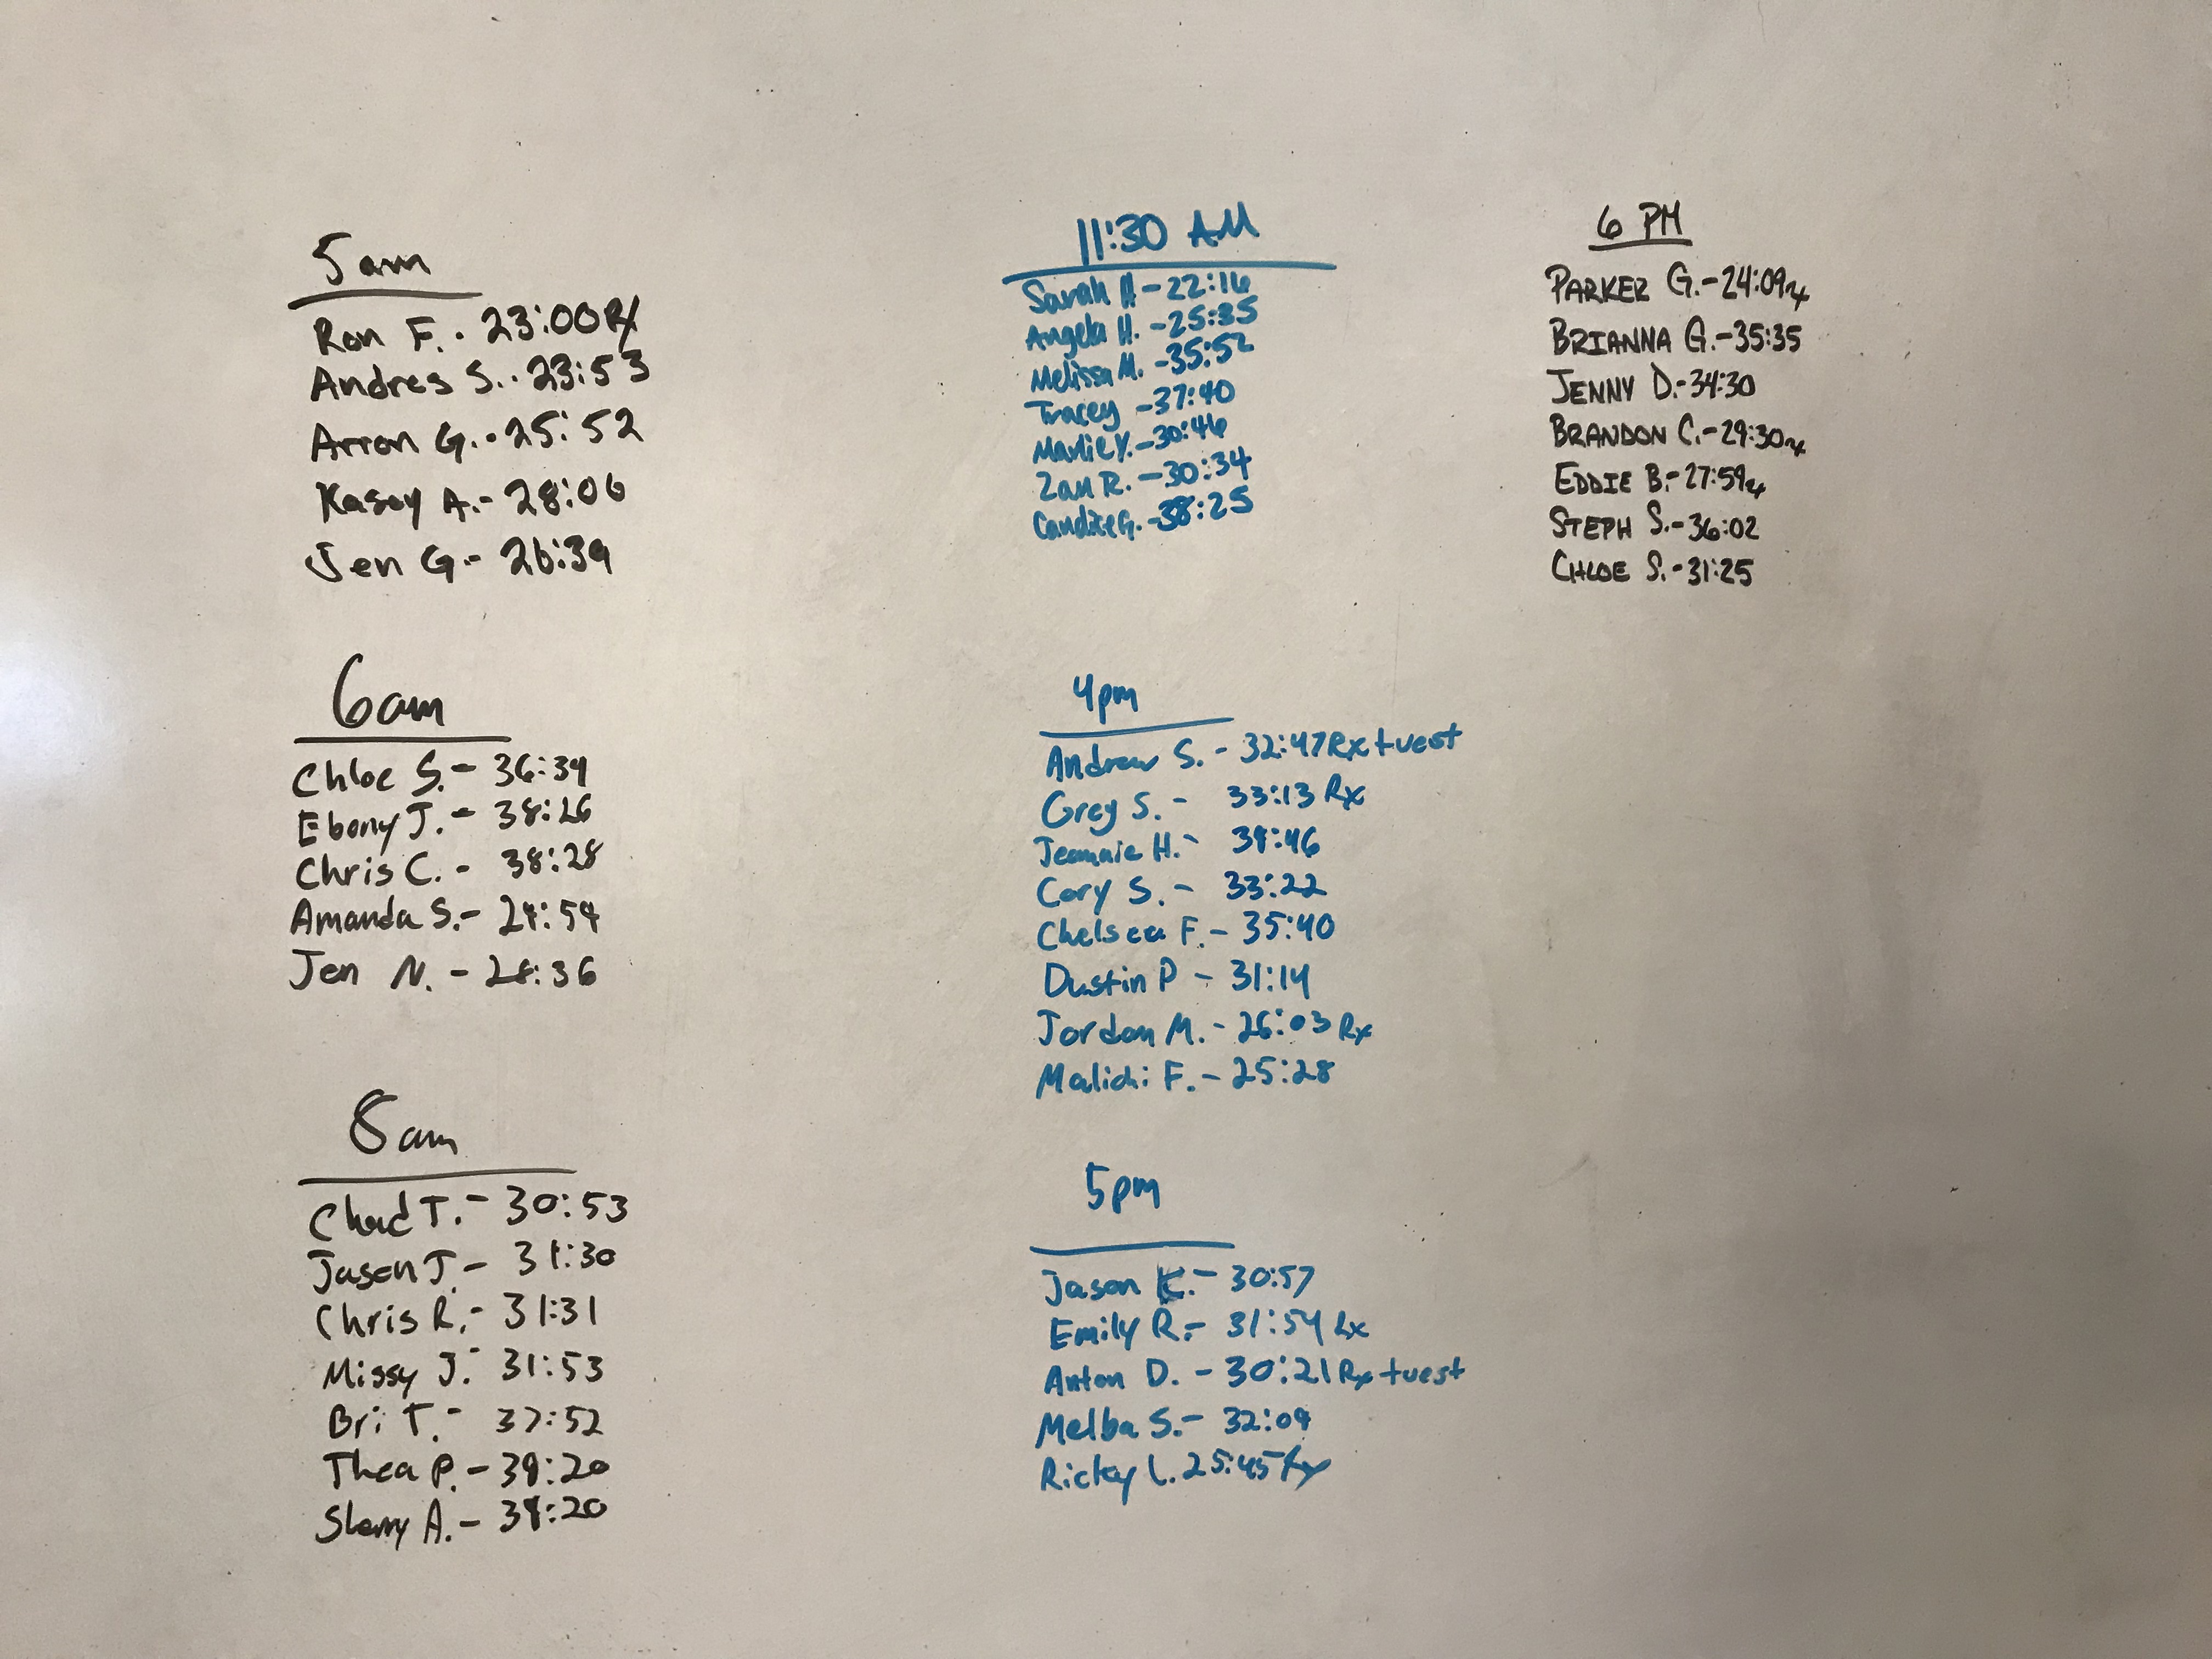 5am
Ron F. - 23:00 Rx
Andres S. - 23:53
Arron G. - 25:52
Kasey A. - 28:06
Jen G. - 26:39
6am
Chloe S. - 36:34
Ebony J. - 38:26
Chris C. - 38:28
Amanda S. - 24:54
Jen N. - 28:36
8am
Chad T. - 30:53
Jason J. - 31:30
Chris R. - 31:31
Missy J. - 31:53
Bri T. - 37:52
Thea P. - 39:20
Sherry A. - 38:20
11:30 AM
Sarah H - 22:16
Angela H. - 25:35
Melissa M. - 35:52
Tracey - 37:40
Marlie Y. - 30:46
Zan R. - 30:34
Candice G. - 38:25
4pm
Andrew S. - 32:47 Rx + vest
Greg S. - 33:13 Rx
Jeannie H. - 39:46
Cory S. - 33:22
Chelsea F. - 35:40
Dustin P - 31:14
Jordan M. - 26:03 Rx
Malichi F. - 25:28
5pm
Jason K. - 30:57
Emily R. - 31:54 Rx
Anton D. - 30:21 Rx + vest
Melba S. - 32:09
Ricky L. 25:45 Rx
6 PM
PARKER G. - 24:09 rx
BRIANNA G. - 35:35
JENNY D. - 34:30
BRANDON C. - 29:30 rx
EDDIE B. - 27:59 rx
STEPH S. - 36:02
CHLOE S. - 31:25